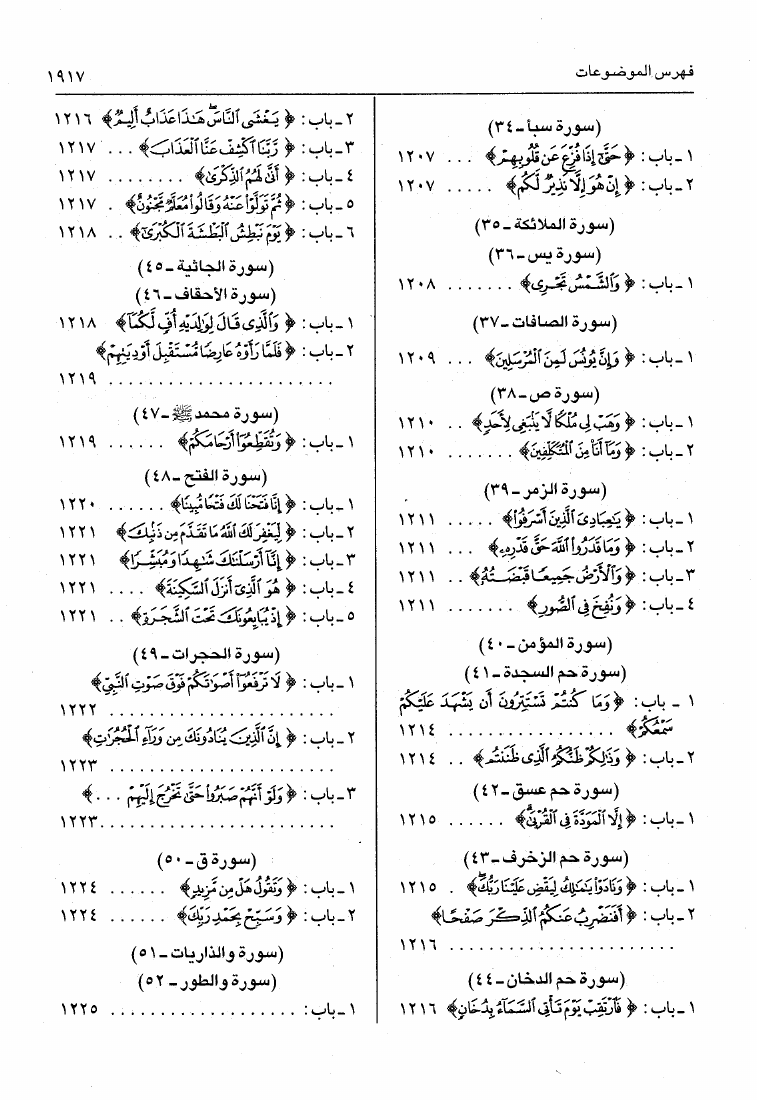 فهرس الموضوعات
١٩١٧
(سورة سبأ - ٣٤)
١ - باب: ﴿حَتَّىٰ إِذَا فُزِّعَ عَن قُلُوبِهِمْ﴾ . . . ١٢٠٧
٢ - باب: ﴿إِنْ هُوَ إِلَّا نَذِيرٌ لَّكُم﴾ . . . . . ١٢٠٧
(سورة الملائكة - ٣٥)
(سورة يس - ٣٦)
١ - باب: ﴿وَالشَّمْسُ تَجْرِي﴾ . . . . . . . ١٢٠٨
(سورة الصافات - ٣٧)
١ - باب: ﴿وَإِنَّ يُونُسَ لَمِنَ الْمُرْسَلِينَ﴾ . . . ١٢٠٩
(سورة ص - ٣٨)
١ - باب: ﴿وَهَبْ لِي مُلْكًا لَّا يَنبَغِي لِأَحَدٍ﴾ . . ١٢١٠
٢ - باب: ﴿وَمَا أَنَا مِنَ الْمُتَكَلِّفِينَ﴾ . . . . . . . ١٢١٠
(سورة الزمر - ٣٩)
١ - باب: ﴿يَٰعِبَادِيَ الَّذِينَ أَسْرَفُوا﴾ . . . . . ١٢١١
٢ - باب: ﴿وَمَا قَدَرُوا اللَّهَ حَقَّ قَدْرِهِ﴾ . . . ١٢١١
٣ - باب: ﴿وَالْأَرْضُ جَمِيعًا قَبْضَتُهُ﴾ . . ١٢١١
٤ - باب: ﴿وَنُفِخَ فِي الصُّورِ﴾ . . . . . . . ١٢١١
(سورة المؤمن - ٤٠)
(سورة حم السجدة - ٤١)
١ - باب: ﴿وَمَا كُنتُمْ تَسْتَتِرُونَ أَن يَشْهَدَ عَلَيْكُمْ
سَمْعُكُمْ﴾ . . . . . . . . . . . . . . . . . ١٢١٤
٢ - باب: ﴿وَذَٰلِكُمْ ظَنُّكُمُ الَّذِي ظَنَنتُم﴾ . . ١٢١٤
(سورة حم عسق - ٤٢)
١ - باب: ﴿إِلَّا الْمَوَدَّةَ فِي الْقُرْبَىٰ﴾ . . . . . . ١٢١٥
(سورة حم الزخرف - ٤٣)
١ - باب: ﴿وَنَادَوْا يَٰمَٰلِكُ لِيَقْضِ عَلَيْنَا رَبُّكَ﴾ . ١٢١٥
٢ - باب: ﴿أَفَنَضْرِبُ عَنكُمُ الذِّكْرَ صَفْحًا﴾
. . . . . . . . . . . . . . . . . . . . . . . ١٢١٦
(سورة حم الدخان - ٤٤)
١ - باب: ﴿فَارْتَقِبْ يَوْمَ تَأْتِي السَّمَاءُ بِدُخَانٍ﴾ ١٢١٦
٢ - باب: ﴿يَغْشَى النَّاسَ هَٰذَا عَذَابٌ أَلِيمٌ﴾ ١٢١٦
٣ - باب: ﴿رَّبَّنَا اكْشِفْ عَنَّا الْعَذَابَ﴾ . . . ١٢١٧
٤ - باب: ﴿أَنَّىٰ لَهُمُ الذِّكْرَىٰ﴾ . . . . . . . . ١٢١٧
٥ - باب: ﴿ثُمَّ تَوَلَّوْا عَنْهُ وَقَالُوا مُعَلَّمٌ مَّجْنُونٌ﴾ . ١٢١٧
٦ - باب: ﴿يَوْمَ نَبْطِشُ الْبَطْشَةَ الْكُبْرَىٰ﴾ . . ١٢١٨
(سورة الجاثية - ٤٥)
(سورة الأحقاف - ٤٦)
١ - باب: ﴿وَالَّذِي قَالَ لِوَالِدَيْهِ أُفٍّ لَّكُمَا﴾ ١٢١٨
٢ - باب: ﴿فَلَمَّا رَأَوْهُ عَارِضًا مُّسْتَقْبِلَ أَوْدِيَتِهِمْ﴾
. . . . . . . . . . . . . . . . . . . . . . . ١٢١٩
(سورة محمد ﷺ - ٤٧)
١ - باب: ﴿وَتُقَطِّعُوا أَرْحَامَكُمْ﴾ . . . . . . ١٢١٩
(سورة الفتح - ٤٨)
١ - باب: ﴿إِنَّا فَتَحْنَا لَكَ فَتْحًا مُّبِينًا﴾ . . . . . . ١٢٢٠
٢ - باب: ﴿لِّيَغْفِرَ لَكَ اللَّهُ مَا تَقَدَّمَ مِن ذَنبِكَ﴾ ١٢٢١
٣ - باب: ﴿إِنَّا أَرْسَلْنَٰكَ شَٰهِدًا وَمُبَشِّرًا﴾ ١٢٢١
٤ - باب: ﴿هُوَ الَّذِي أَنزَلَ السَّكِينَةَ﴾ . . . . ١٢٢١
٥ - باب: ﴿إِذْ يُبَايِعُونَكَ تَحْتَ الشَّجَرَةِ﴾ . . ١٢٢١
(سورة الحجرات - ٤٩)
١ - باب: ﴿لَا تَرْفَعُوا أَصْوَاتَكُمْ فَوْقَ صَوْتِ النَّبِيِّ﴾
. . . . . . . . . . . . . . . . . . . . . . . ١٢٢٢
٢ - باب: ﴿إِنَّ الَّذِينَ يُنَادُونَكَ مِن وَرَاءِ الْحُجُرَاتِ﴾
. . . . . . . . . . . . . . . . . . . . . . . ١٢٢٣
٣ - باب: ﴿وَلَوْ أَنَّهُمْ صَبَرُوا حَتَّىٰ تَخْرُجَ إِلَيْهِمْ . . . ﴾
. . . . . . . . . . . . . . . . . . . . . . . ١٢٢٣
(سورة ق - ٥٠)
١ - باب: ﴿وَتَقُولُ هَلْ مِن مَّزِيدٍ﴾ . . . . . . ١٢٢٤
٢ - باب: ﴿وَسَبِّحْ بِحَمْدِ رَبِّكَ﴾ . . . . . . ١٢٢٤
(سورة والذاريات - ٥١)
(سورة والطور - ٥٢)
١ - باب: . . . . . . . . . . . . . . . . . . . ١٢٢٥